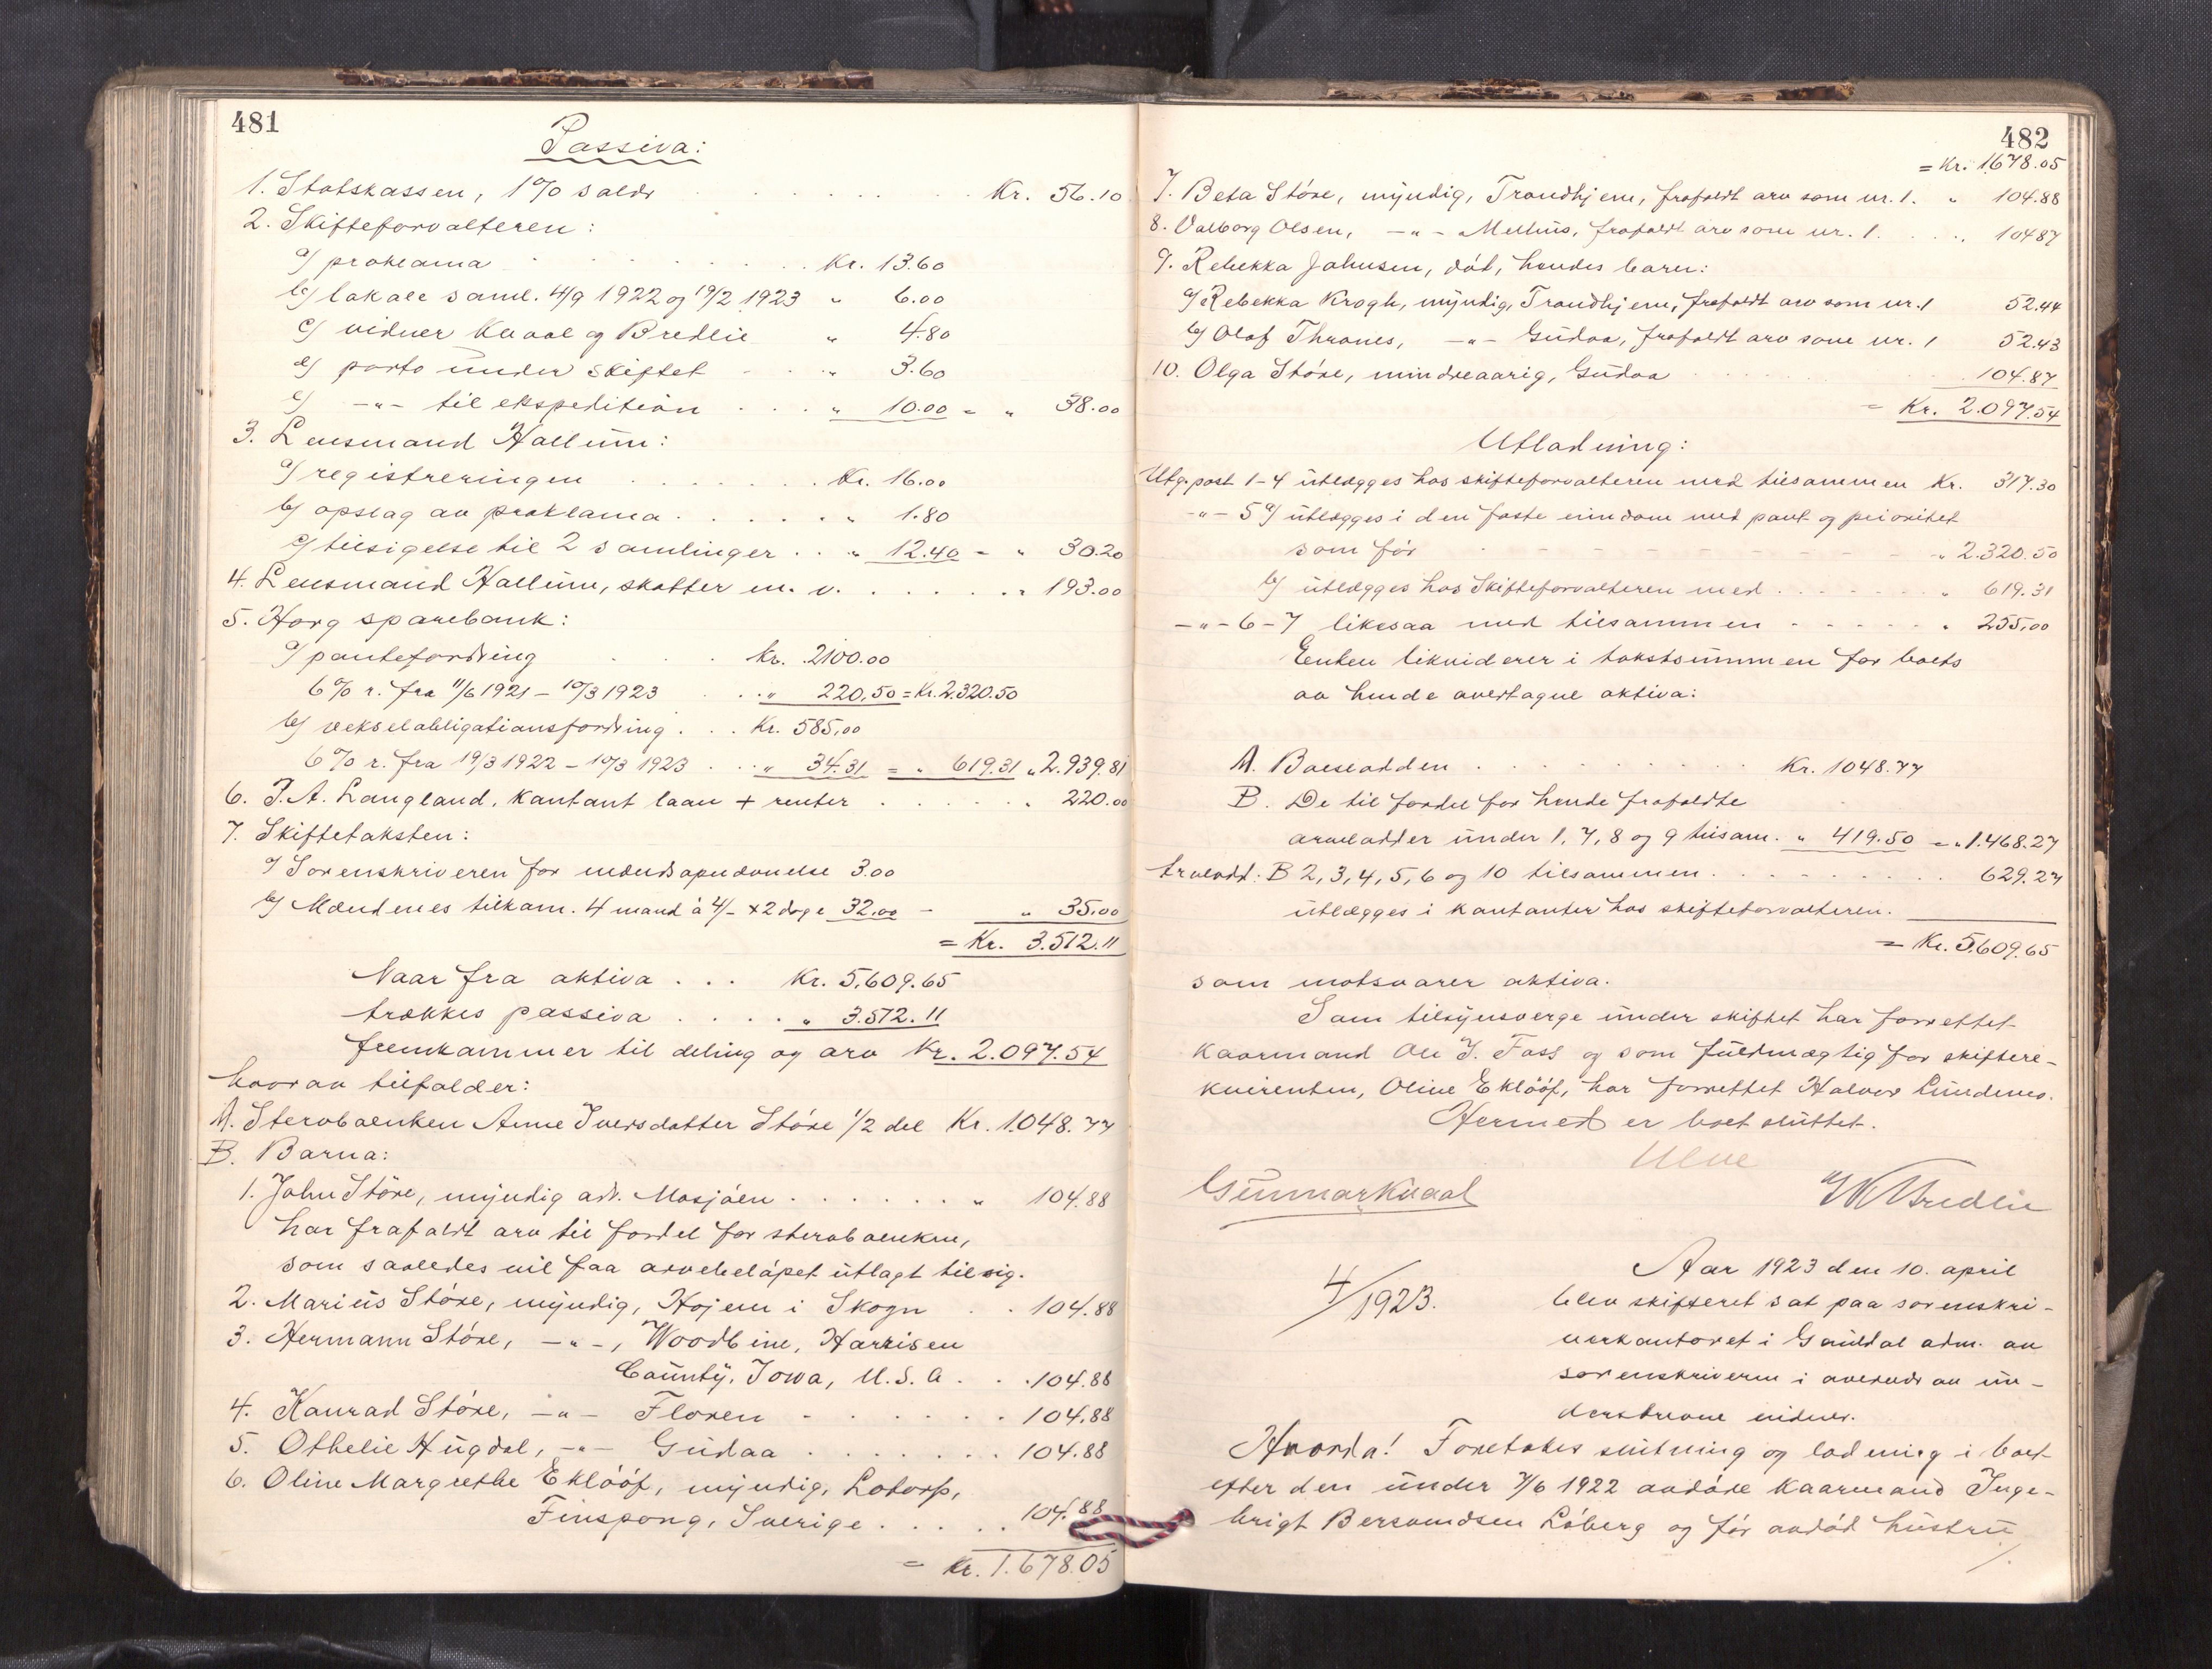 481
Passiva:
1. Statskassen, 1% saldo . . . . . Kr. 56.10
2. Skifteforvalteren:
a) proklama . . . . . Kr. 13.60
b) lokale saml. 4/9 1922 og 19/2 1923 " 6.00
c) vidner Kvaal og Bredlie " 4.80
d) porto under skiftet . . " 3.60
e) -"- til ekspedition . . . " 10.00 = " 38.00
3. Lensmand Hallum:
a) registreringen . . . . . Kr. 16.00
b) opslag av proklama . . . . " 1.80
c) tilsigelse til 2 samlinger . . " 12.40 = " 30.20
4. Lensmand Hallum, skatter m. v. . . . . . " 193.00
5. Horg sparebank:
a) pantefordring . . . Kr. 2100.00
6% r. fra 11/6 1921 - 10/3 1923 . . . " 220,50 = Kr. 2.320.50
b) vekselobligationsfordring . . . Kr. 585,00
6% r. fra 19/3 1922 - 10/3 1923 . . . " 34.31 = " 619.31 " 2.939.81
6. P. A. Langland, kontant laan + renter . . . . . " 220.00
7. Skiftetaksten:
a) Sorenskriveren for mændsopnævnelse 3.00
b) Mændenes tilkom. 4 mand à 4/- x 2 dage 32,00 - " 35.00
= Kr. 3.512.11
Naar fra aktiva . . . Kr. 5.609.65
trækkes passiva . . . . " 3.512.11
fremkommer til deling og arv Kr. 2.097.54
hvorav tilfalder:
A. Stervboenken Anne Iversdatter Støre 1/2 del Kr. 1.048.77
B. Barna:
1. John Støre, myndig adr. Mosjøen . . . . . . " 104.88
har frafaldt arv til fordel for stervboenken,
som saaledes vil faa arvebeløpet utlagt til sig.
2. Marius Støre, myndig, Hojem i Skogn . . 104.88
3. Hermann Støre, -"-, Woodbine, Harrisen
County, Iowa, U. S. A . . . 104.88
4. Konrad Støre, -"- Floren . . . . . . 104.88
5. Othelie Hugdal, -"- Gudaa . . . . . . 104.88
6. Oline Margrethe Eklööf, myndig, Lotorp,
Finspong, Sverige . . . . . 104.88
= Kr. 1.678.05
482
= Kr. 1.678.05
7. Beta Støre, myndig, Trondhjem, frafaldt arv som nr. 1. " 104.88
8. Valborg Olsen, -"- Melhus, frafaldt arv som nr. 1. . . . 104.87
9. Rebekka Johnsen, død, hendes barn:
a) Rebekka Krogh, myndig, Trondhjem, frafaldt arv som nr. 1 52.44
b) Olaf Thranes, -"- Gudaa, frafaldt arv som nr. 1 52.43
10. Olga Støre, mindreaarig, Gudaa . . . . . 104.87
= Kr. 2.097.54
Utlodning:
Utg. post 1-4 utlægges hos skifteforvalteren med tilsammen Kr. 317.30
-"- 5 a) utlægges i den faste eiendom med pant og prioritet
som før - - - - - - " 2.320.50
b) utlægges hos Skifteforvalteren med . . . . . " 619.31
-"- 6-7 likesaa med tilsammen . . . . . " 255,00
Enken likviderer i takstsummen for boets
av hende overtagne aktiva:
A. Boeslodden . . . . . . . Kr. 1048.77
B. De til fordel for hende frafaldte
arvelodder under 1, 7, 8 og 9 tilsam. " 419.50 = " 1.468.27
Arvelodd. B 2, 3, 4, 5, 6 og 10 tilsammen . . . . . . 629.27
utlægges i kontanter hos skifteforvalteren.
= Kr. 5.609.65
som motsvarer aktiva.
Som tilsynsverge under skiftet har forrettet
kaarmand Ole J. Foss og som fuldmægtig for skiftere-
kvirenten, Oline Eklööf, har forrettet Halvor Lundemo.
Hermed er boet sluttet.
Ulve
Gunnar Kvaal
Bredlie
4/1923.
Aar 1923 den 10. april
blev skifteret sat paa sorenskri-
verkontoret i Gauldal adm. av
sorenskriveren i overvær av un-
derskrevne vidner.
Hvorda! Foretokes slutning og lodning i boet
efter den under 7/6 1922 avdøde kaarmand Inge-
brigt Bersvendsen Løberg og før avdød hustru